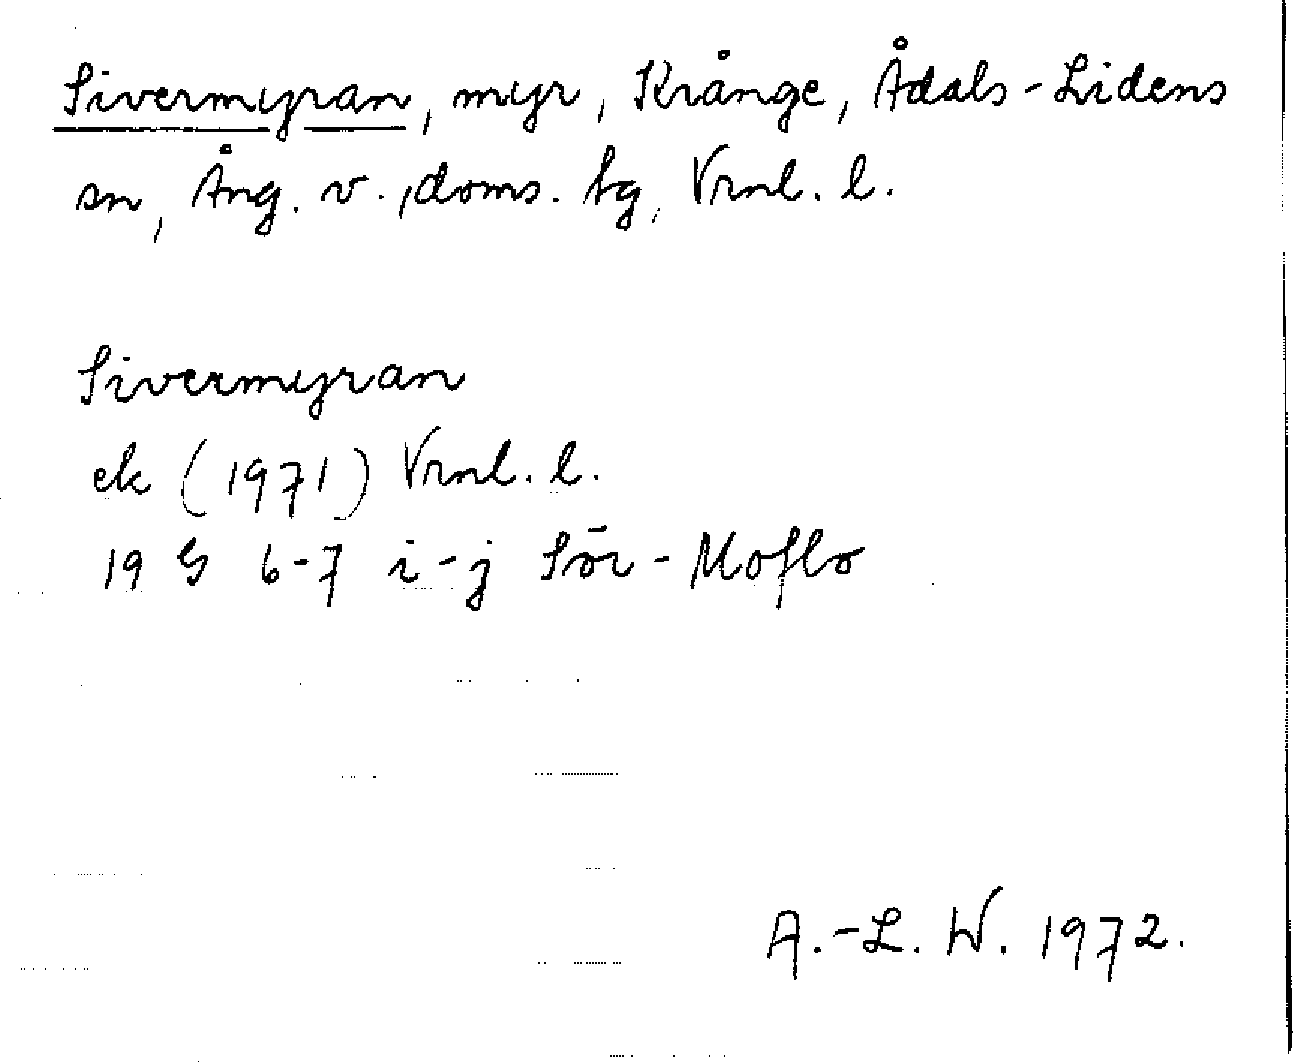 Sivermyran, myr, Krånge, Ådals-Lidens
sn, Ång. v., doms. tg, Vrnl. l.
Sivermyran
ek (1971) Vrnl. l.
19 G 6-7 i-j Sör-Moflo
A.-L. W. 1972.